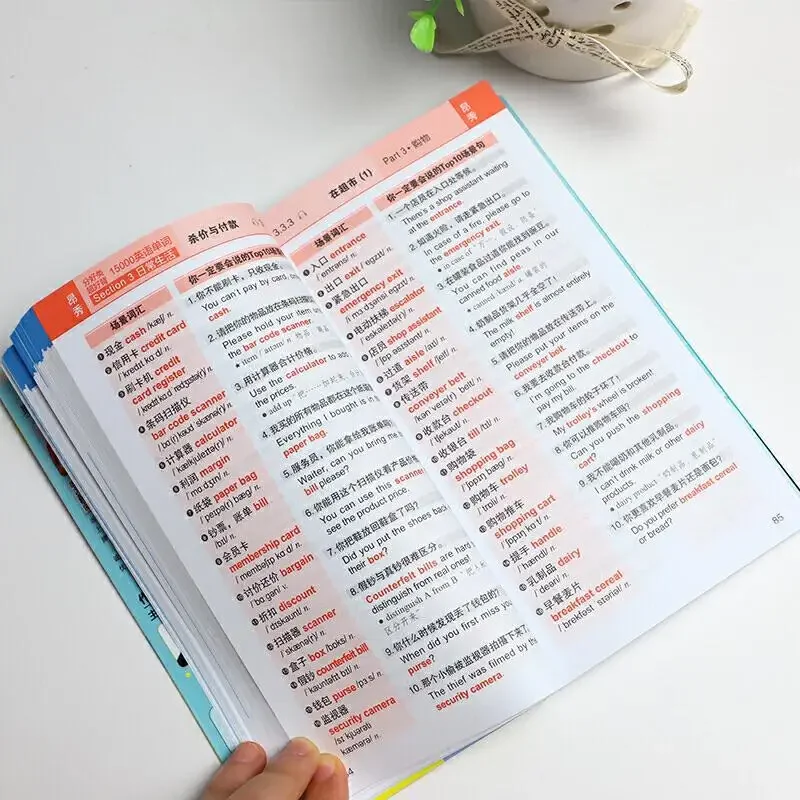 昂秀
分好类
超好背
15000英语单词
Section 3 日常生活
杀价与付款
场景词汇
现金 cash /kæʃ/ n.
信用卡 credit card
/ˈkredɪt kɑːd/ n.
刷卡机 credit
card register
条码扫描仪
bar code scanner
计算器 calculator
/ˈkælkjuleɪtə(r)/ n.
利润 margin
/ˈmɑːdʒɪn/ n.
纸袋 paper bag
/ˈpeɪpə(r) bæɡ/ n.
钞票，账单 bill
/bɪl/ n.
会员卡
membership card
/ˈmembəʃɪp kɑːd/ n.
讨价还价 bargain
/ˈbɑːɡən/ n.
折扣 discount
/ˈdɪskaʊnt/ n.
扫描器 scanner
/ˈskænə(r)/ n.
盒子 box /bɒks/ n.
假钞 counterfeit bill
/ˈkaʊntəfɪt bɪl/ n.
钱包 purse /pɜːs/ n.
监视器
security camera
/sɪˈkjʊərəti
ˈkæmərə/ n.
你一定要会说的Top10场景
1. 你不能刷卡，只收现金。
You can't pay by card,
cash.
2. 请把你的物品放在条码扫描
Please hold your item
the bar code scanner.
item /ˈaɪtəm/ n. 物品
3. 用计算器合计价格。
Use the calculator to ad
the prices.
add up 把……
4. 我买的所有物品都在这个纸袋
Everything I bought is in
paper bag.
5. 服务员，你能拿给我账单吗
Waiter, can you bring me
bill please?
6. 你能用这个扫描仪看产品价格
You can use this scanne
see the product price.
7. 你把鞋放回鞋盒了吗？
Did you put the shoes back
their box?
8. 假钞与真钞很难区分。
Counterfeit bills are hard
distinguish from real ones.
distinguish A from B
区分开来
9. 你什么时候发现丢了钱包的？
When did you first miss you
purse?
10. 那个小偷被监视器拍摄下来了
The thief was filmed by th
security camera.
3.3.3
在超市 (1)
Part 3 • 购物
昂秀
场景词汇
入口 entrance
/ˈentrəns/ n.
出口 exit /ˈeɡzɪt/ n.
紧急出口
emergency exit
/ɪˈmɜːdʒənsi ˈeɡzɪt/ n.
电动扶梯 escalator
/ˈeskəleɪtə(r)/ n.
店员 shop assistant
/ʃɒp əˈsɪstənt/ n.
过道 aisle /aɪl/ n.
货架 shelf /ʃelf/ n.
传送带
conveyer belt
/kənˈveɪə(r) belt/ n.
收款台 checkout
/ˈtʃekaʊt/ n.
收银台 till /tɪl/ n.
购物袋
shopping bag
/ˈʃɒpɪŋ bæɡ/ n.
购物车 trolley
/ˈtrɒli/ n.
购物推车
shopping cart
/ˈʃɒpɪŋ kɑːt/ n.
提手 handle
/ˈhændl/ n.
乳制品 dairy
/ˈdeəri/ n.
早餐麦片
breakfast cereal
/ˈbrekfəst ˈsɪəriəl/ n.
你一定要会说的Top10场景句
1. 一个店员在入口处等候。
There's a shop assistant waiting
at the entrance.
2. 如遇火险，请走紧急出口。
In case of a fire, please go to
the emergency exit.
in case of
3. 在罐装食品过道你能找到豌豆。
You can find peas in our
canned food aisle.
canned /kænd/ a. 罐装的
4. 奶制品货架几乎全空了！
The milk shelf is almost entirely
empty!
5. 请把你的物品放在传送带上。
Please put your items on the
conveyer belt.
6. 我要去收款台付款。
I'm going to the checkout to
pay my bill.
7. 我购物车的轮子坏了！
My trolley's wheel is broken!
8. 你可以推购物车吗？
Can you push the shopping
cart?
9. 我不能喝奶和其他乳制品。
I can't drink milk or other dairy
products.
dairy product “奶制品，乳制品”
10. 你更喜欢早餐麦片还是面包？
Do you prefer breakfast cereal
or bread?
85